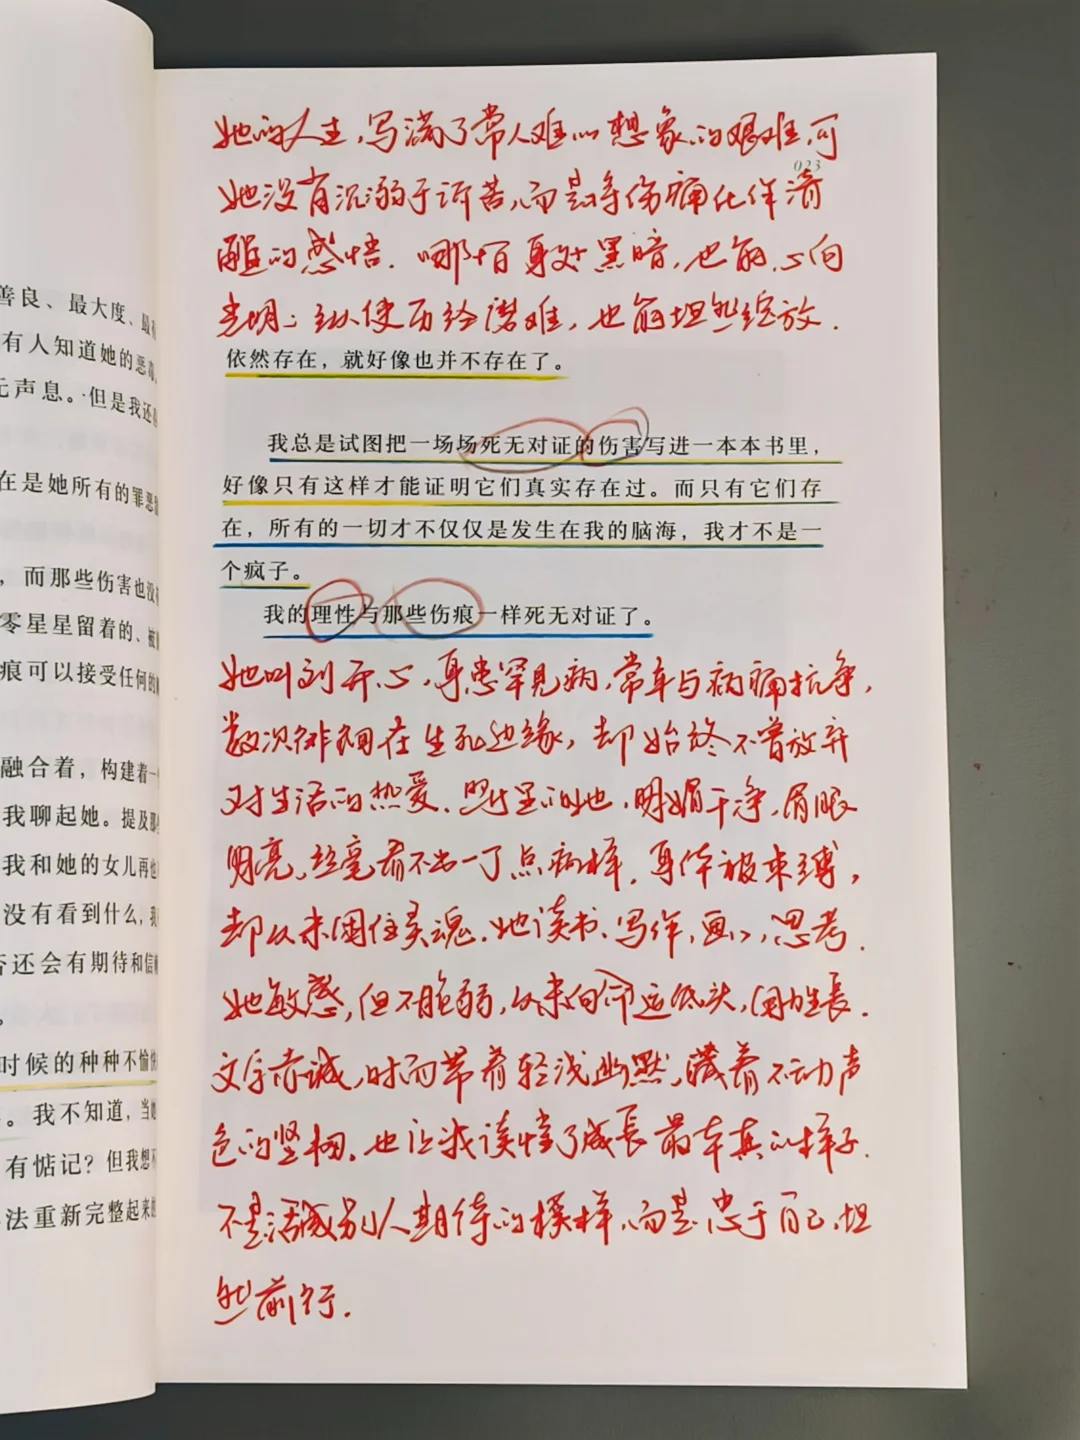 善良、最大度、最
有人知道她的恶毒
无声息。但是我还
在是她所有的罪恶
，而那些伤害也没
零星星留着的、被
痕可以接受任何的
融合着，构建着一
我聊起她。提及那
我和她的女儿再也
没有看到什么，我
否还会有期待和信
。
时候的种种不愉快
。我不知道，当她
有惦记？但我想不
法重新完整起来的
她的人生，写满了常人难以想象的艰难，可
023
她没有沉溺于诉苦，而是将伤痛化作清
醒的感悟．哪怕身处黑暗，也能心向
光明；纵使历经磨难，也能坦然绽放．
依然存在，就好像也并不存在了。
我总是试图把一场场死无对证的伤害写进一本本书里，
好像只有这样才能证明它们真实存在过。而只有它们存
在，所有的一切才不仅仅是发生在我的脑海，我才不是一
个疯子。
我的理性与那些伤痕一样死无对证了。
她叫刘开心，身患罕见病，常年与病痛抗争，
数次徘徊在生死边缘，却始终不曾放弃
对生活的热爱．照片里的她，明媚干净，眉眼
明亮，丝毫看不出一丁点病样．身体被束缚，
却从未困住灵魂．她读书、写作，画画，思考．
她敏感，但不脆弱，从未向命运低头，自由生长．
文字赤诚，时而带着轻浅幽默，藏着不动声
色的坚韧．也让我读懂了成长最本真的样子．
不是活成别人期待的模样，而是忠于自己，坦
然前行．